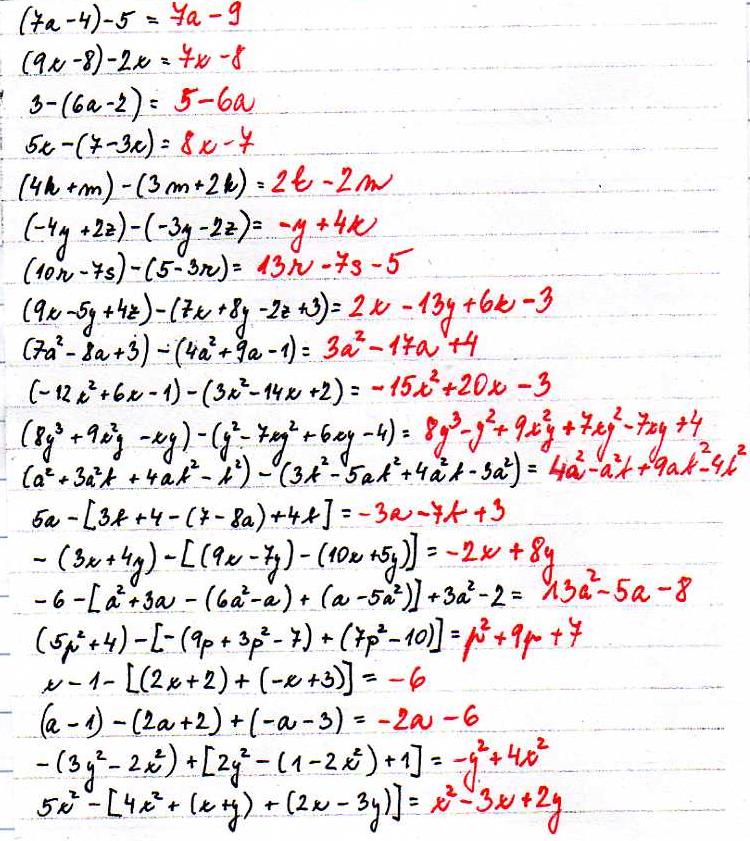 (7a-4)-5 = 7a-9
(9x-8)-2x = 7x-8
3-(6a-2) = 5-6a
5x-(7-3x) = 8x-7
(4k+m)-(3m+2k) = 2k-2m
(-4y+2z)-(-3y-2z) = -y+4z
(10r-7s)-(5-3r) = 13r-7s-5
(9x-5y+4z)-(7x+8y-2z+3) = 2x-13y+6z-3
(7a²-8a+3)-(4a²+9a-1) = 3a²-17a+4
(-12x²+6x-1)-(3x²-14x+2) = -15x²+20x-3
(8y³+9x²y-xy)-(y²-7xy²+6xy-4) = 8y³-y²+9x²y+7xy²-7xy+4
(a²+3a²b+4ab²-b²)-(3b²-5ab²+4a²b-3a²) = 4a²-a²b+9ab²-4b²
5a-[3b+4-(7-8a)+4b] = -3a-7b+3
-(3x+4y)-[(9x-7y)-(10x+5y)] = -2x+8y
-6-[a²+3a-(6a²-a)+(a-5a²)]+3a²-2 = 13a²-5a-8
(5p²+4)-[-(9p+3p²-7)+(7p²-10)] = p²+9p+7
x-1-[(2x+2)+(-x+3)] = -6
(a-1)-(2a+2)+(-a-3) = -2a-6
-(3y²-2x²)+[2y²-(1-2x²)+1] = -y²+4x²
5x²-[4x²+(x+y)+(2x-3y)] = x²-3x+2y